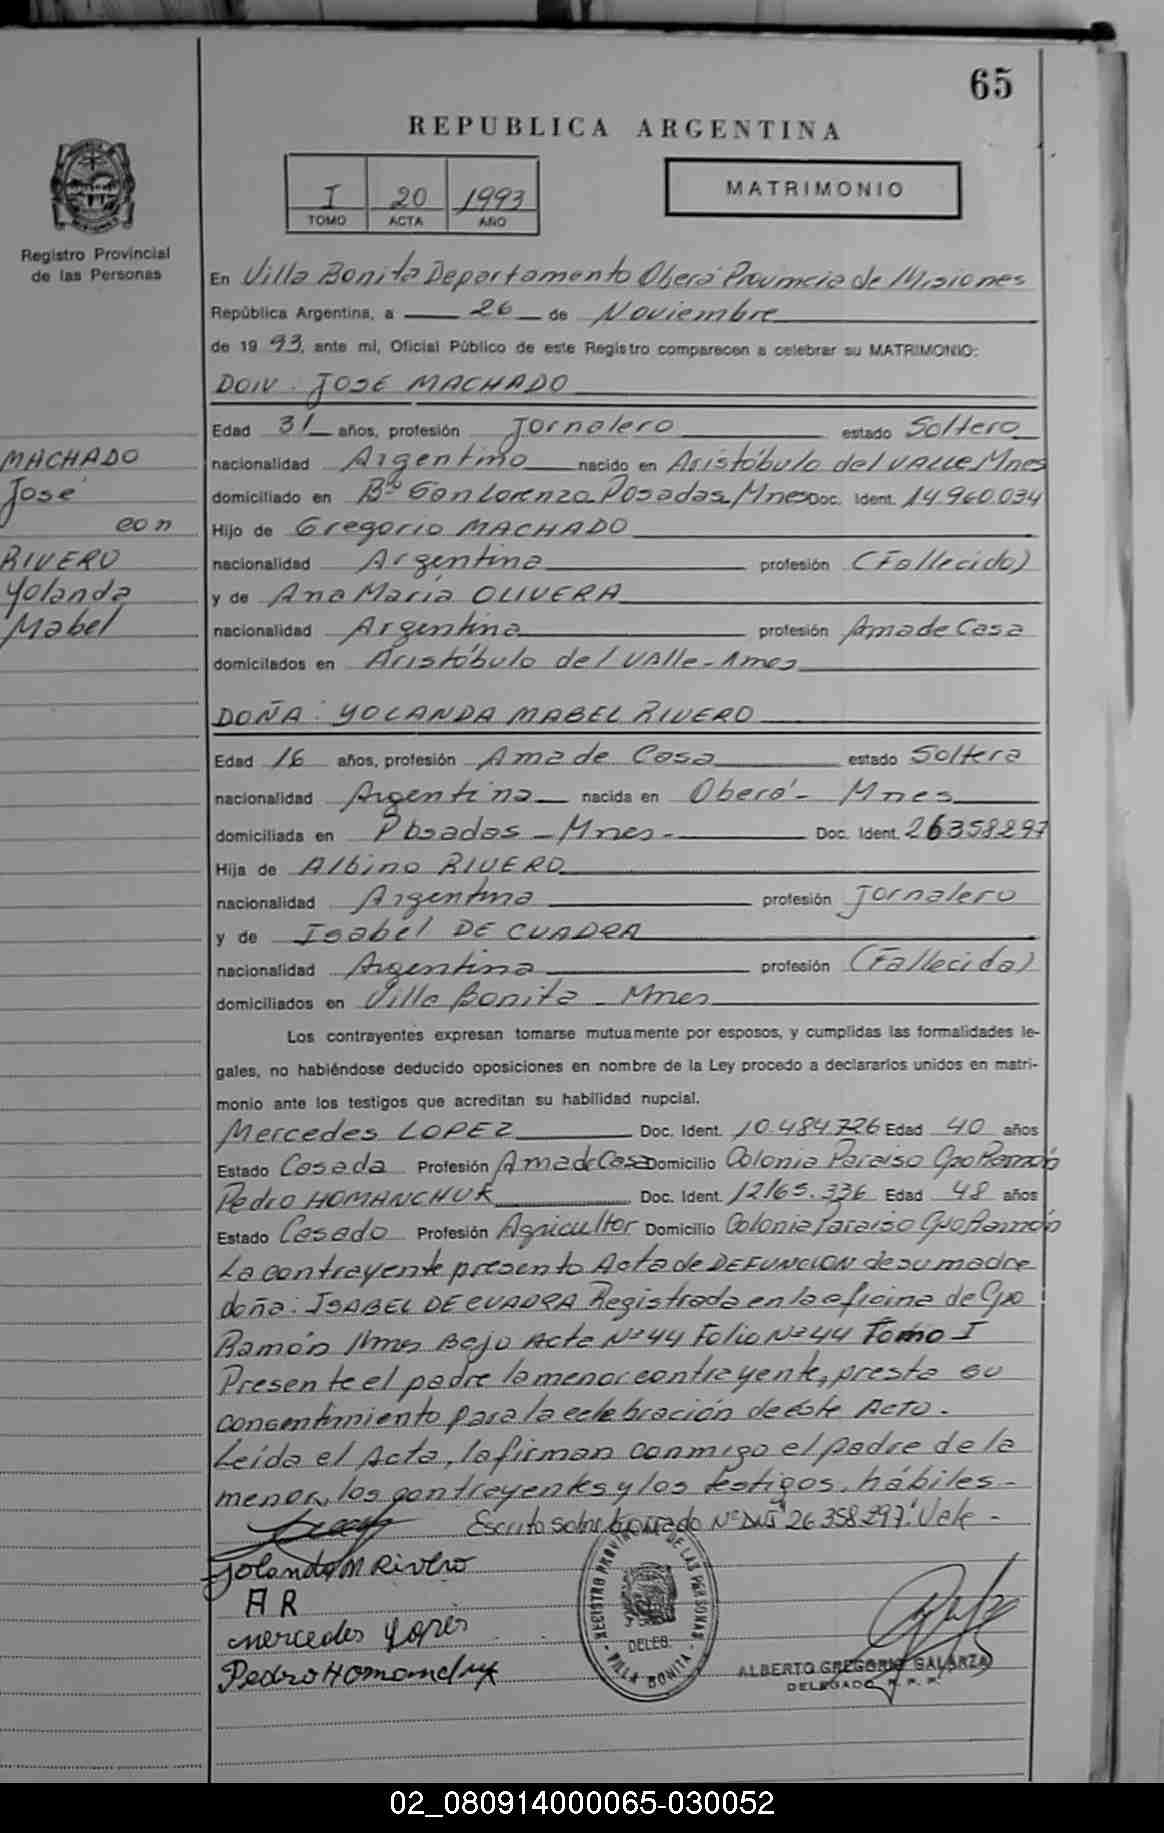 65
REPUBLICA ARGENTINA
I 20 1993
TOMO ACTA AÑO
MATRIMONIO
Registro Provincial
de las Personas
En Villa Bonita Departamento Oberá Provincia de Misiones
República Argentina, a 26 de Noviembre
de 19 93, ante mi, Oficial Público de este Registro comparecen a celebrar su MATRIMONIO:
DON: JOSÉ MACHADO
Edad 31 años, profesión Jornalero estado Soltero
MACHADO
José
con
RIVERO
Yolanda
Mabel
nacionalidad Argentino nacido en Aristóbulo del VALLE Mnes
domiciliado en Bº San Lorenzo Posadas Mnes Doc. Ident. 14.960.034
Hijo de Gregorio MACHADO
nacionalidad Argentina profesión (Fallecido)
y de Ana María OLIVERA
nacionalidad Argentina profesión Ama de Casa
domicilados en Aristóbulo del VAlle - Mnes
DOÑA: YOLANDA MABEL RIVERO
Edad 16 años, profesión Ama de Casa estado Soltera
nacionalidad Argentina nacida en Oberá - Mnes
domiciliada en Posadas - Mnes - Doc. Ident. 26358297
Hija de Albino RIVERO
nacionalidad Argentina profesión Jornalero
y de Isabel DE CUADRA
nacionalidad Argentina profesión (Fallecida)
domiciliados en Villa Bonita - Mnes
Los contrayentes expresan tomarse mutuamente por esposos, y cumplidas las formalidades le-
gales, no habiéndose deducido oposiciones en nombre de la Ley procedo a declararlos unidos en matri-
monio ante los testigos que acreditan su habilidad nupcial.
Mercedes LOPEZ Doc. Ident. 10.484.726 Edad 40 años
Estado Casada Profesión Ama de Casa Domicilio Colonia Paraiso Gpo Ramón
Pedro HOMANCHUK Doc. Ident. 12165.336 Edad 48 años
Estado Casado Profesión Agricultor Domicilio Colonia Paraiso Gpo Ramón
La contrayente presento Acta de DEFUNCION de su madre
doña: ISABEL DE CUADRA Registrada en la oficina de Gpo
Ramón Mnes Bajo Acta Nº 44 Folio Nº 44 Tomo I
Presente el padre la menor contrayente, presta su
consentimiento para la celebración de éste ACTO.
Leída el Acta, la firman conmigo el padre de la
menor, los contrayentes y los testigos, hábiles -
Escrito sobre borrado Nº DNI "26358297" Vale -
Yolanda M Rivero
A R
Mercedes Lopes
Pedro Homanchuk
REGISTRO PROVINCIAL DE LAS PERSONAS
DELEG.
VILLA BONITA
ALBERTO GREGORIO GALARZA
DELEGADO R. P. P.
02_080914000065-030052